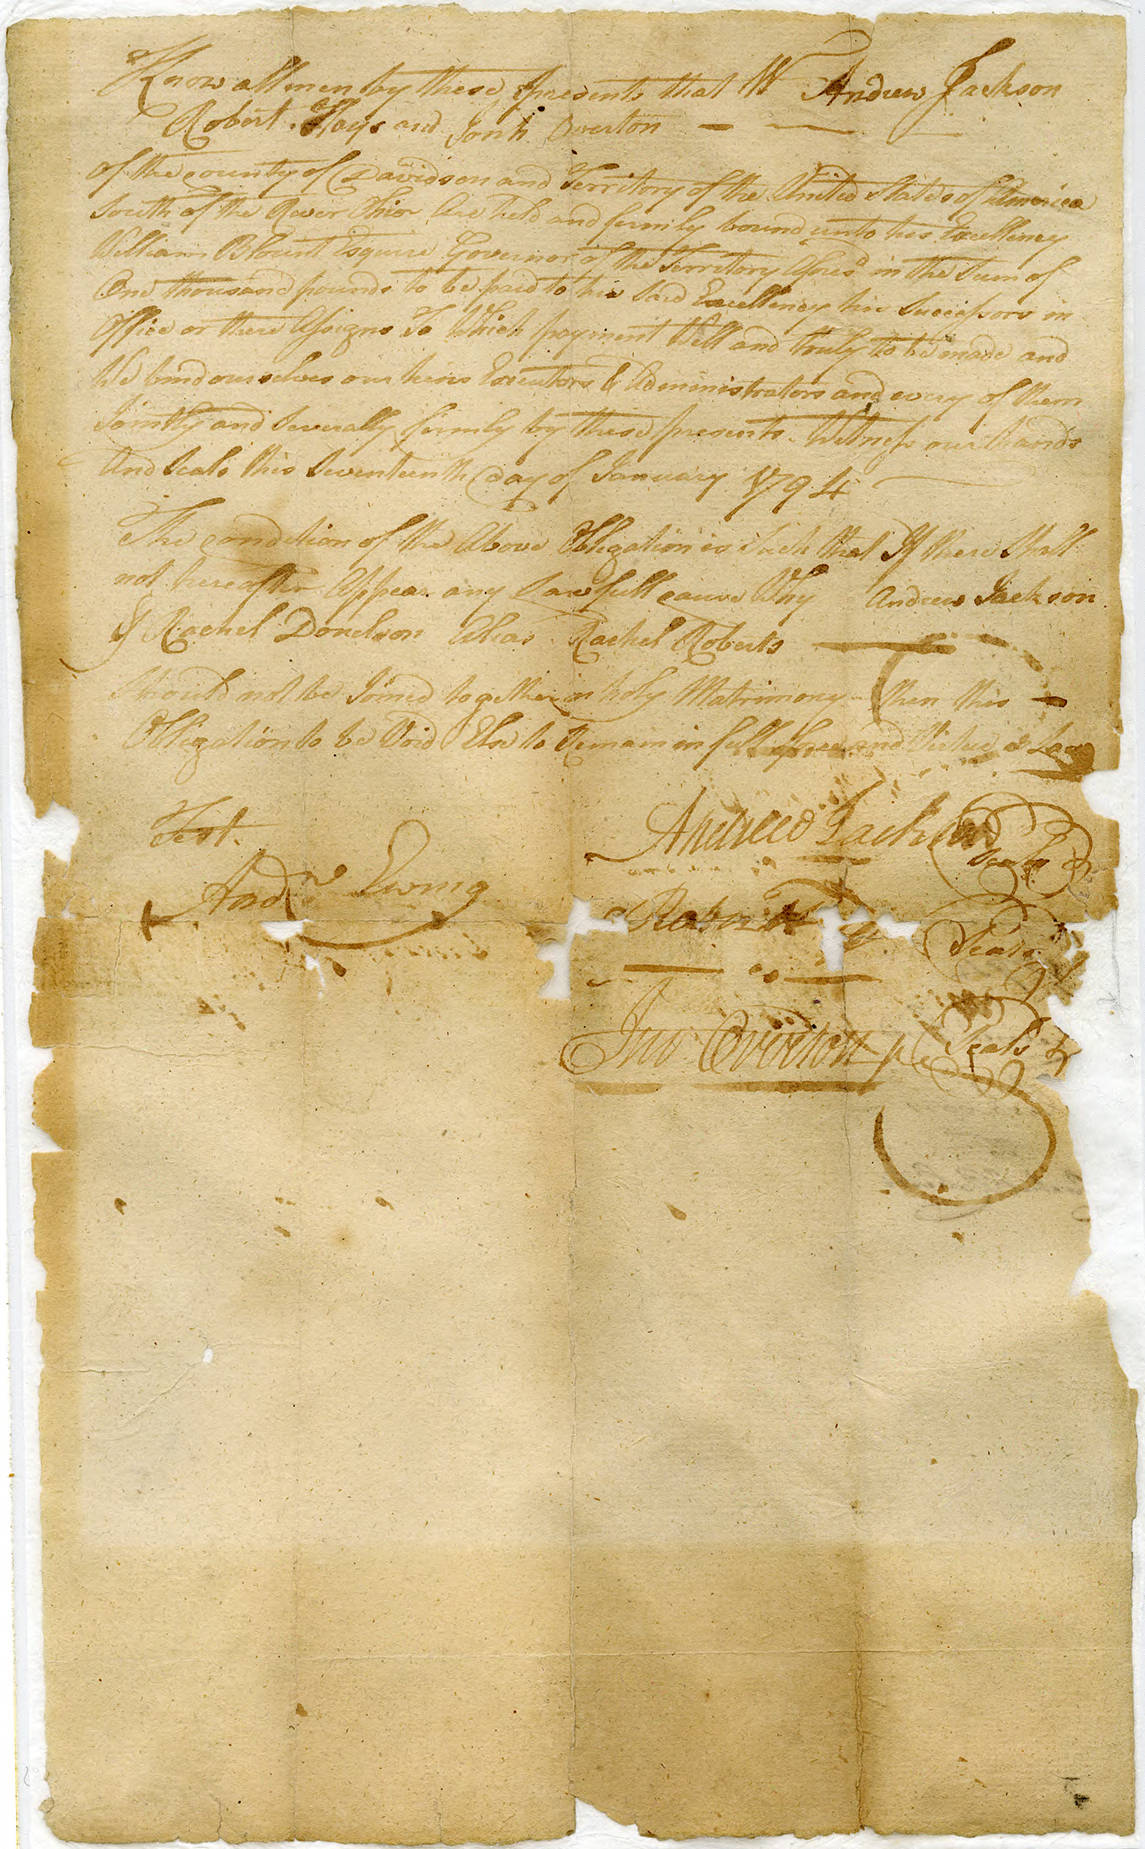 Know all men by these presents that W Andrew Jackson
Robert Hays and Jonh Overton
of the county of Davidson and Territory of the United States of America
South of the River Ohio are held and firmly bound unto his Excellency
William Blount Esquire Governor of the Territory Aforesd in the Sum of
One thousand pounds to be paid to his Said Excellency his Successors in
Office or there Assigns To Which payment Well and truly to be made and
We bind ourselves our heirs Executors & Administrators and every of them
Jointly and Severally firmly by these presents. Witness our hands
And Seals this Seventeenth day of January 1794
The condition of the Above Obligation is Such that If there Shall
not hereafter Appear any Lawfull cause Why Andrew Jackson
& Rachel Donelson Alias Rachel Roberts
Should not be Joined together in holy Matrimony then this
Obligation to be Void Else to Remain in full force and Virtue in Law
Test.
Andrew Jackson Seal
Andw Ewing
Robert Seal
Jno Overton Seal